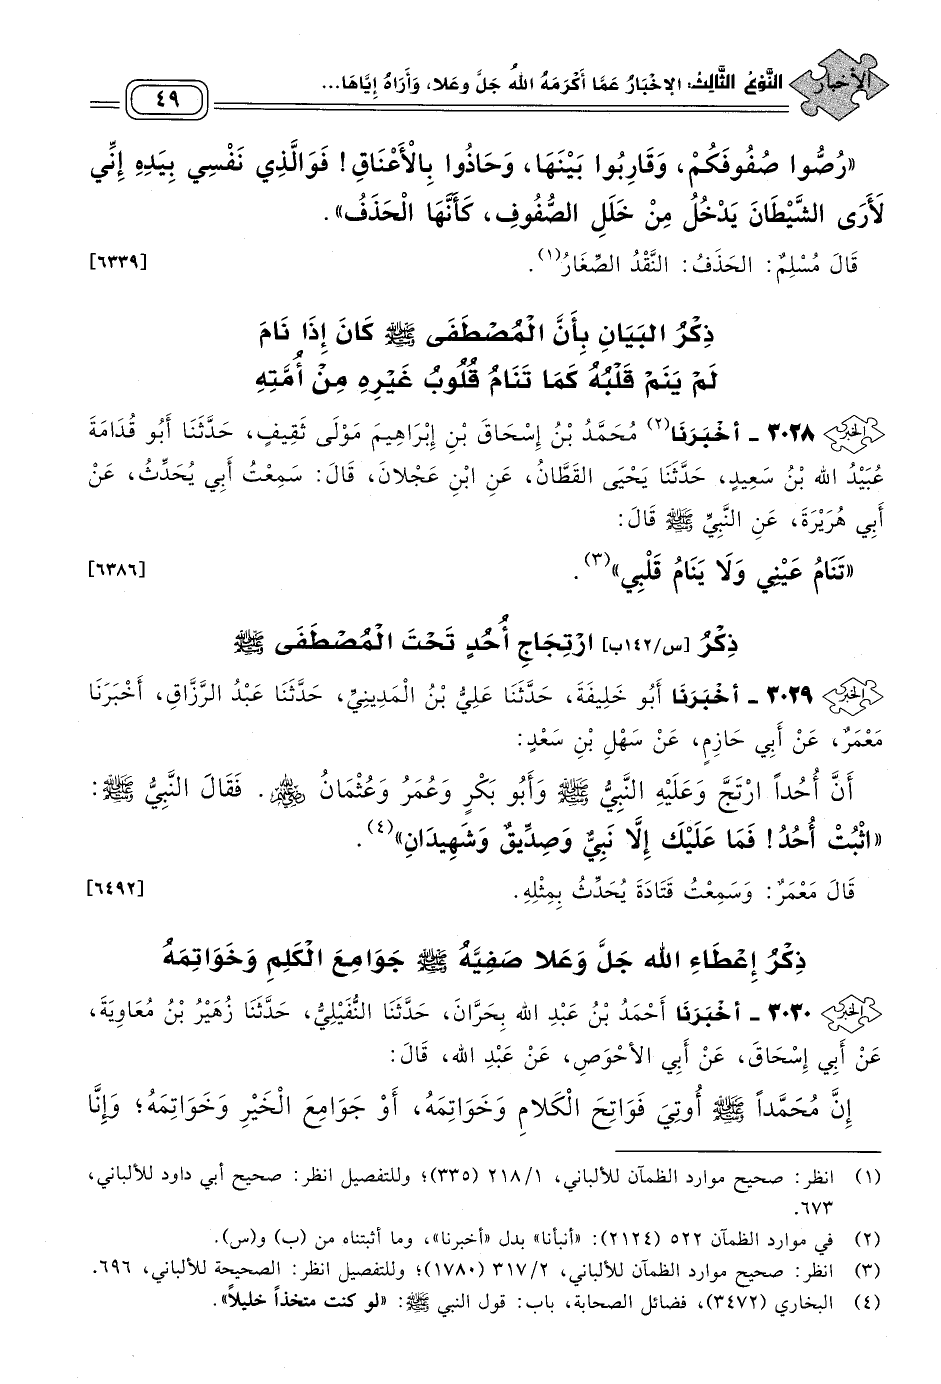 الأخبار
النَّوْعُ الثَّالِثُ: الإِخْبَارُ عَمَّا أَكْرَمَهُ اللهُ جَلَّ وعَلا، وَأَرَاهُ إِيَّاهَا...
٤٩
«رُصُّوا صُفُوفَكُمْ، وَقَارِبُوا بَيْنَهَا، وَحَاذُوا بِالْأَعْنَاقِ! فَوَالَّذِي نَفْسِي بِيَدِهِ إِنِّي
لَأَرَى الشَّيْطَانَ يَدْخُلُ مِنْ خَلَلِ الصُّفُوفِ، كَأَنَّهَا الْحَذَفُ».
قَالَ مُسْلِمٌ: الحَذَفُ: النَّقْدُ الصِّغَارُ(١). [٦٣٣٩]
ذِكْرُ البَيَانِ بِأَنَّ الْمُصْطَفَى ﷺ كَانَ إِذَا نَامَ
لَمْ يَنَمْ قَلْبُهُ كَمَا تَنَامُ قُلُوبُ غَيْرِهِ مِنْ أُمَّتِهِ
٣٠٢٨ ـ أخْبَرَنَا(٢) مُحَمَّدُ بْنُ إِسْحَاقَ بْنِ إِبْرَاهِيمَ مَوْلَى ثَقِيفٍ، حَدَّثَنَا أَبُو قُدَامَةَ
عُبَيْدُ الله بْنُ سَعِيدٍ، حَدَّثَنَا يَحْيَى القَطَّانُ، عَنِ ابْنِ عَجْلانَ، قَالَ: سَمِعْتُ أَبِي يُحَدِّثُ، عَنْ
أَبِي هُرَيْرَةَ، عَنِ النَّبِيِّ ﷺ قَالَ:
«تَنَامُ عَيْنِي وَلَا يَنَامُ قَلْبِي»(٣). [٦٣٨٦]
ذِكْرُ [س/١٤٢ب] ارْتِجَاجِ أُحُدٍ تَحْتَ الْمُصْطَفَى ﷺ
٣٠٢٩ ـ أخْبَرَنَا أَبُو خَلِيفَةَ، حَدَّثَنَا عَلِيُّ بْنُ الْمَدِينِيِّ، حَدَّثَنَا عَبْدُ الرَّزَّاقِ، أَخْبَرَنَا
مَعْمَرٌ، عَنْ أَبِي حَازِمٍ، عَنْ سَهْلِ بْنِ سَعْدٍ:
أَنَّ أُحُداً ارْتَجَّ وَعَلَيْهِ النَّبِيُّ ﷺ وَأَبُو بَكْرٍ وَعُمَرُ وَعُثْمَانُ . فَقَالَ النَّبِيُّ ﷺ:
«اثْبُتْ أُحُدُ! فَمَا عَلَيْكَ إِلَّا نَبِيٌّ وَصِدِّيقٌ وَشَهِيدَانِ»(٤).
قَالَ مَعْمَرٌ: وَسَمِعْتُ قَتَادَةَ يُحَدِّثُ بِمِثْلِهِ. [٦٤٩٢]
ذِكْرُ إِعْطَاءِ الله جَلَّ وَعَلا صَفِيَّهُ ﷺ جَوَامِعَ الْكَلِمِ وَخَوَاتِمَهُ
٣٠٣٠ ـ أخْبَرَنَا أَحْمَدُ بْنُ عَبْدِ الله بِحَرَّانَ، حَدَّثَنَا النُّفَيْلِيُّ، حَدَّثَنَا زُهَيْرُ بْنُ مُعَاوِيَةَ،
عَنْ أَبِي إِسْحَاقَ، عَنْ أَبِي الأَحْوَصِ، عَنْ عَبْدِ الله، قَالَ:
إِنَّ مُحَمَّداً ﷺ أُوتِيَ فَوَاتِحَ الْكَلَامِ وَخَوَاتِمَهُ، أَوْ جَوَامِعَ الْخَيْرِ وَخَوَاتِمَهُ؛ وَإِنَّا
(١) انظر: صحيح موارد الظمآن للألباني، ٢١٨/١ (٣٣٥)؛ وللتفصيل انظر: صحيح أبي داود للألباني،
٦٧٣.
(٢) في موارد الظمآن ٥٢٢ (٢١٢٤): «أنبأنا» بدل «أخبرنا»، وما أثبتناه من (ب) و(س).
(٣) انظر: صحيح موارد الظمآن للألباني، ٣١٧/٢ (١٧٨٠)؛ وللتفصيل انظر: الصحيحة للألباني، ٦٩٦.
(٤) البخاري (٣٤٧٢)، فضائل الصحابة، باب: قول النبي ﷺ: «لو كنت متخذاً خليلاً».